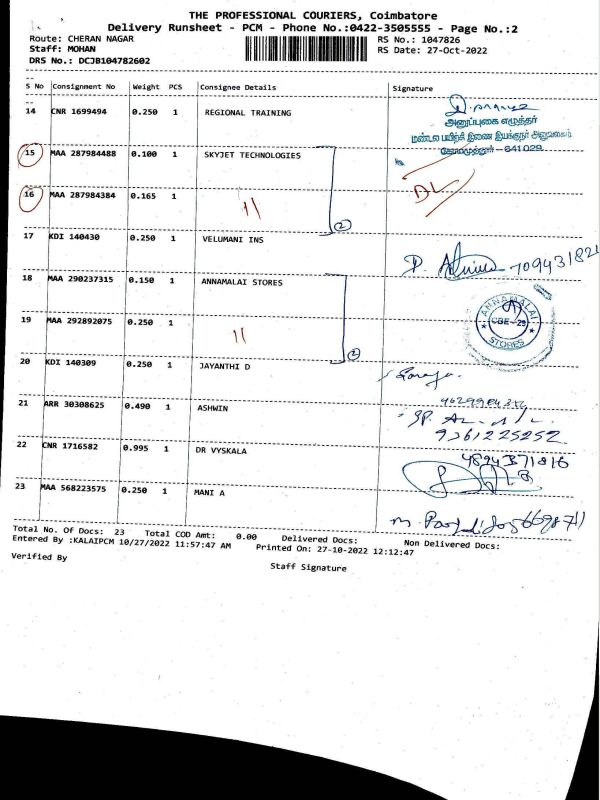 THE PROFESSIONAL COURIERS, Coimbatore
Delivery Runsheet - PCM - Phone No.:0422-3505555 - Page No.:2
Route: CHERAN NAGAR
RS No.: 1047826
Staff: MOHAN
RS Date: 27-Oct-2022
DRS No.: DCJB104782602
S No Consignment No Weight PCS Consignee Details Signature
14 CNR 1699494 0.250 1 REGIONAL TRAINING
அனுப்புகை எழுத்தர்
மண்டல பயிற்சி இணை இயக்குநர் அலுவலகம்
கோயமுத்தூர் - 641 029.
15 MAA 287984488 0.100 1 SKYJET TECHNOLOGIES
DL
16 MAA 287984384 0.165 1 11
2
17 KDI 140430 0.250 1 VELUMANI INS
18 MAA 290237315 0.150 1 ANNAMALAI STORES
ANNAMALAI
CBE-29
STORES
19 MAA 292892075 0.250 1 11
2
20 KDI 140309 0.250 1 JAYANTHI D
21 ARR 30308625 0.490 1 ASHWIN
9361225252
22 CNR 1716582 0.995 1 DR VYSKALA
4894371816
23 MAA 568223575 0.250 1 MANI A
Total No. Of Docs: 23 Total COD Amt: 0.00 Delivered Docs: Non Delivered Docs:
Entered By :KALAIPCM 10/27/2022 11:57:47 AM Printed On: 27-10-2022 12:12:47
Verified By
Staff Signature